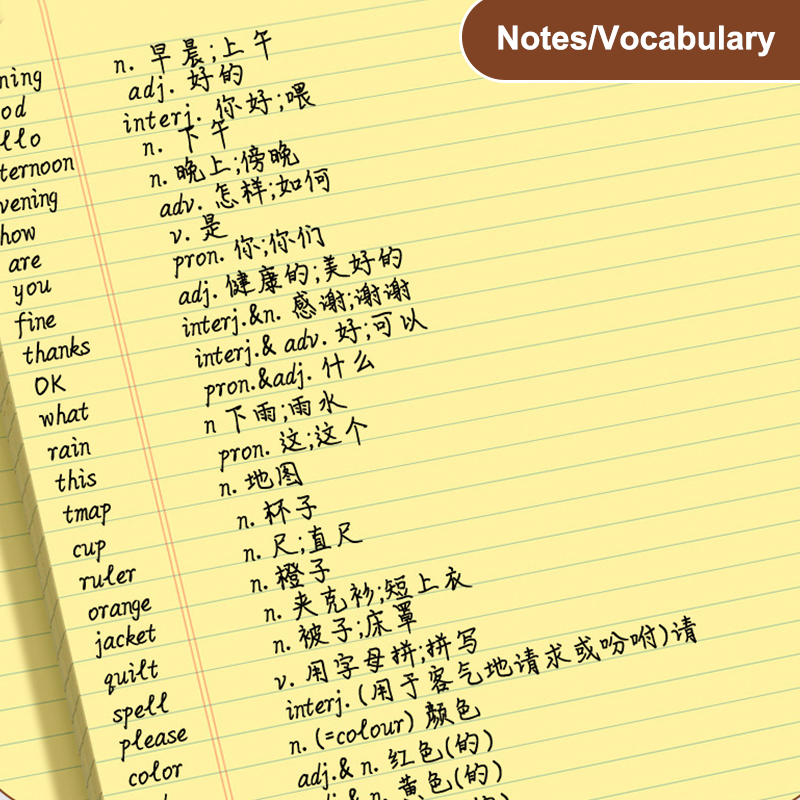 Notes/Vocabulary
ning n. 早晨;上午
od adj. 好的
llo interj. 你好;喂
ternoon n. 下午
vening n. 晚上;傍晚
how adv. 怎样;如何
are v. 是
you pron. 你;你们
fine adj. 健康的;美好的
thanks interj.&n. 感谢;谢谢
OK interj.& adv. 好;可以
what pron.&adj. 什么
rain n 下雨;雨水
this pron. 这;这个
tmap n. 地图
cup n. 杯子
ruler n. 尺;直尺
orange n. 橙子
jacket n. 夹克衫;短上衣
quilt n. 被子;床罩
spell v. 用字母拼;拼写
please interj. (用于客气地请求或吩咐)请
color n. (=colour) 颜色
adj.& n. 红色(的)
n. 黄色(的)